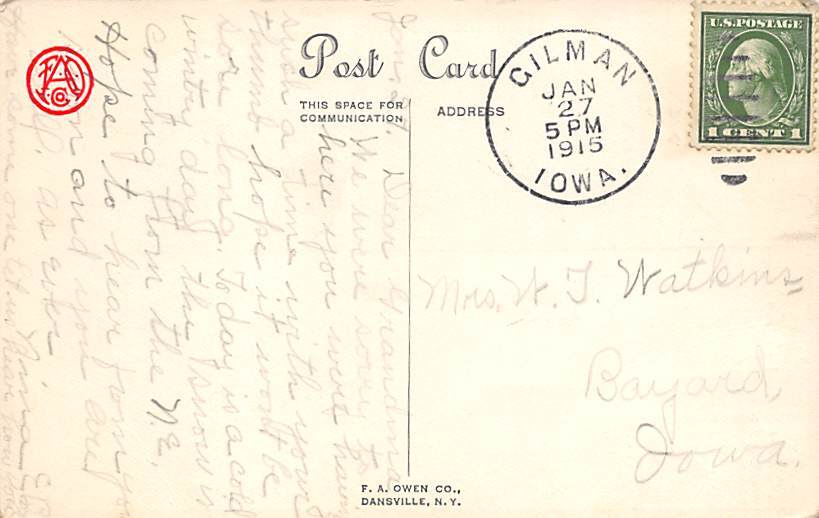 Post Card
THIS SPACE FOR
COMMUNICATION
ADDRESS
GILMAN
JAN
27
5 PM
1915
IOWA.
U.S. POSTAGE
1 CENT 1
FAO
Co.
Mrs. W. T. Watkins
Bayard,
Iowa.
Dear Grandma
We were sorry to
hear you were having
such a time with your
thumb hope it wont be
sore long. Today is a cold
wintry day the snow is
coming from the N.E.
Hope to hear from you
soon and you are
as ever
Nina
F. A. OWEN CO.,
DANSVILLE, N. Y.